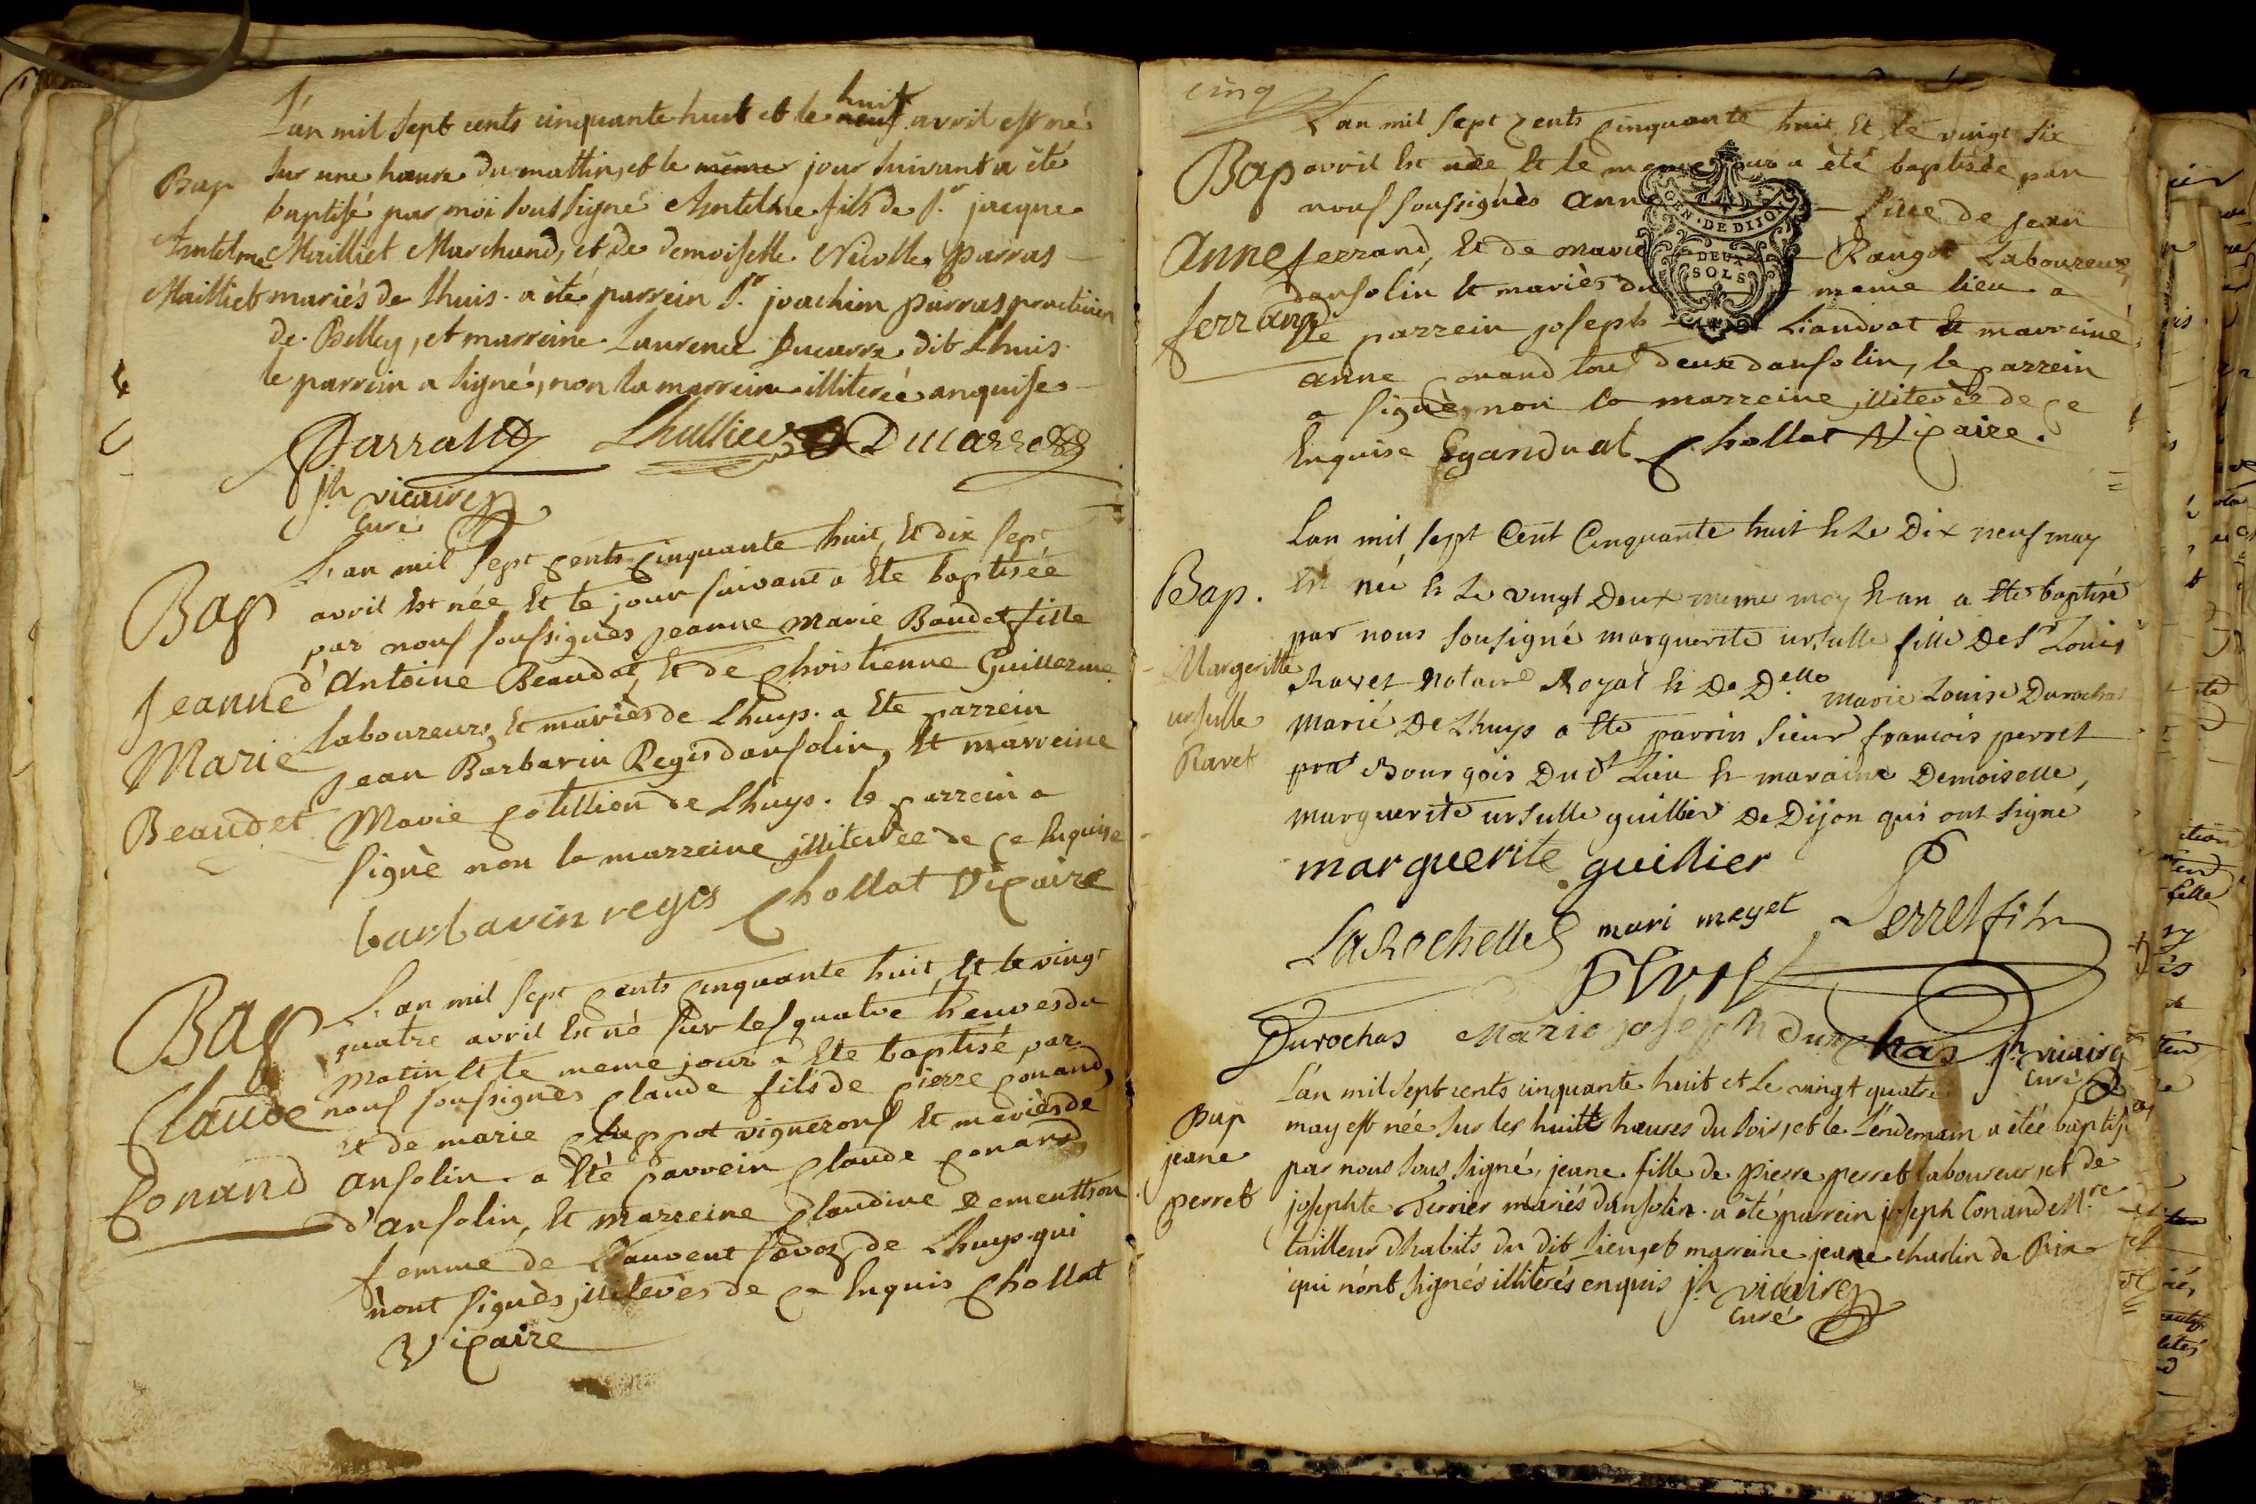 L'an mil sept cents cinquante huit et le huit neuf avril est né
Bap sur une heure du mattin, et le même jour suivant a été
baptisé par moi soussigné Antelme fils de Sr. jacque
Antelme Mailliet Marchand, et de demoiselle Nicolle parras
Mailliet mariés de Lhuis. a été parrein Sr. joachim parras practicien
de Belley, et marreine Laurence Ducarre dit Lhuis
le parrein a signé, non la marreine illiterée anquise
Parrallx Lhullier Ducarre
jh vicaire
Curé
L'an mil sept cents cinquante huit, et dix sept
Bap avril est née et le jour suivant a ete baptisée
par nous soussignès jeanne marie Baudet fille
Jeanne d'Antoine Beaudet, et de christienne Guillerme
laboureurs, et mariès de Lhuys. a ete parrein
Marie jean Barbarin Regis dansolin, et marreine
Beaudet Marie cotillion de Lhuys. le parrein a
signè non la marreine illiterée de ce enquise
barbarin regis Chollat Vicaire
Bap L'an mil sept cents cinquante huit, et le vingt
quatre avril est né sur les quatre heures du
matin et le meme jour a ete baptisé par
Claude nous soussignès claude fils de pierre conand,
et de marie chappot vignerons et mariès de
Conand ansolin. a été parrein claude conand
d'ansolin, et marreine claudine
femme de de Lhuys qui
n'ont signès, illiterès de ce enquis Chollat
Vicaire
cinq
L'an mil sept cents cinquante huit et le vingt six
Bap avril est née et le meme jour a été baptisée par
nous soussignès anne fille de jean
GEN. DE DIJON
DEUX
SOLS
Anne ferrand, et de marie Rangot Laboureur,
dansolin et mariès du meme lieu a
ferrand été parrein joseph Liandrat et marreine
anne conand tous deux dansolin, le parrein
a signè, non la marreine, illiterée de ce
Enquise Eyandrat Chollat Vicaire.
Lan mil sept Cent Cinquante huit & Le Dix neuf may
Bap. est née & Le vingt Deux meme may & an a ete baptisé
par nous sousigné marguerite ursulle fille De Sr Louis
Margeritte Ravet Notaire Royal & De Delle marie Louise Durochat
ursulle marié De Lhuys a ete parrin sieur francois perret
Ravet prat Bourgois Dudt Lieu & maraine Demoiselle,
marguerite ursulle guillier De Dijon qui ont signe
marguerite guillier
LaRochelle mari meyet Perret fils
Durochas Marie joseph durochas jh vicaire
Curé
L'an mil sept cents cinquante huit et le vingt quatre
Bap may est née sur les huitt heures du soir, et le Lendemain a étée baptisé
jeane par nous sous signé, jeane fille de pierre perret laboureur, et de
perret josephte Perrier mariés d'ansolin. a été parrein joseph Conand Mre
tailleur d'habits du dit Lieu, et marreine jeane charlin de Prix
qui n'ont signés illiterés enquis jh vicaire
Curé